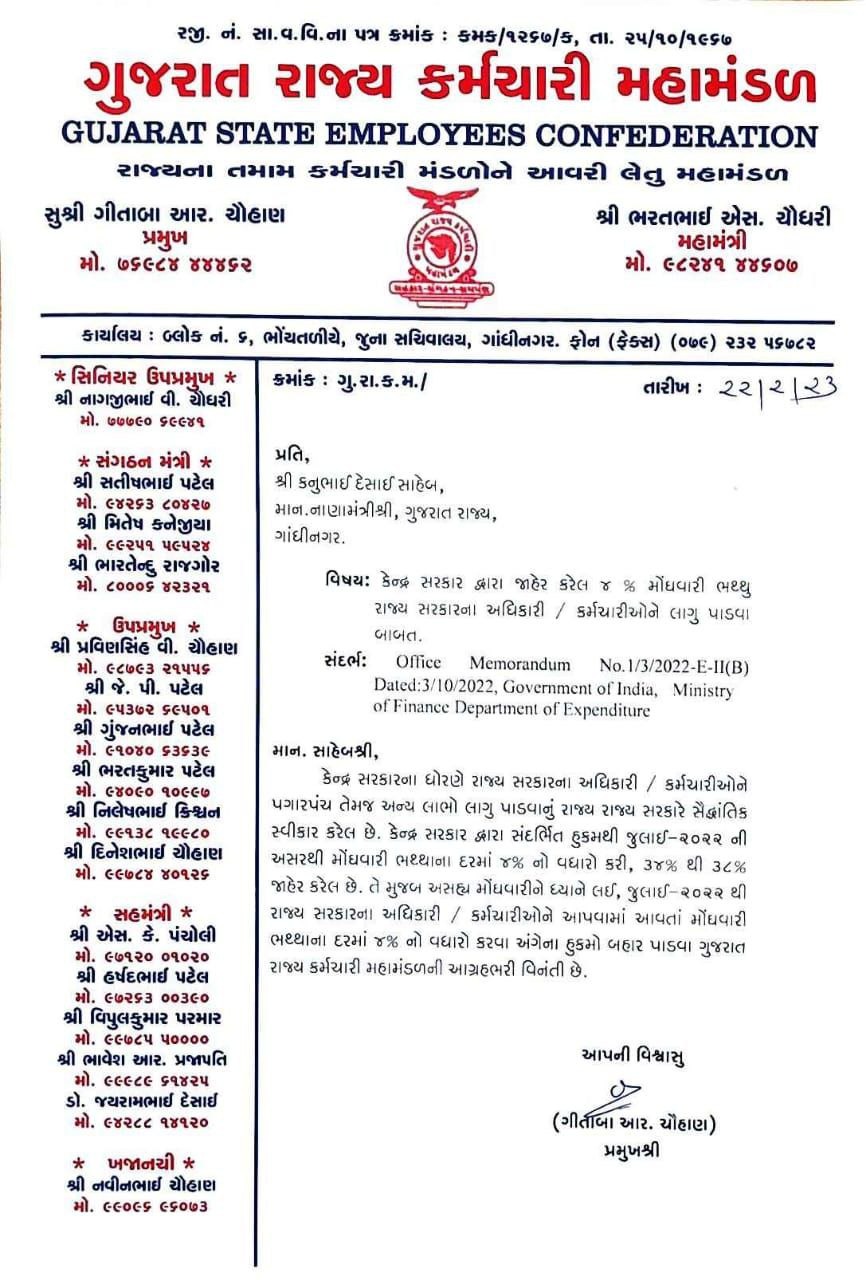 રજી. નં. સા.વ.વિ.ના પત્ર ક્રમાંક : કમક/૧૨૬૭/ક, તા. ૨૫/૧૦/૧૯૬૭
ગુજરાત રાજ્ય કર્મચારી મહામંડળ
GUJARAT STATE EMPLOYEES CONFEDERATION
રાજ્યના તમામ કર્મચારી મંડળોને આવરી લેતુ મહામંડળ
સુશ્રી ગીતાબા આર. ચૌહાણ
પ્રમુખ
મો. ૭૬૯૮૪ ૪૪૪૬૨
ગુજરાત રાજ્ય કર્મચારી
મહામંડળ
સહકાર-સંગઠન-સમર્પણ
શ્રી ભરતભાઈ એસ. ચૌધરી
મહામંત્રી
મો. ૯૮૨૪૧ ૪૪૬૦૭
કાર્યાલય : બ્લોક નં. ૬, ભોંયતળીયે, જુના સચિવાલય, ગાંધીનગર. ફોન (ફેક્સ) (૦૭૯) ૨૩૨ ૫૬૭૮૨
* સિનિયર ઉપપ્રમુખ *
શ્રી નાગજીભાઈ વી. ચૌધરી
મો. ૭૭૭૯૦ ૬૯૯૪૧
* સંગઠન મંત્રી *
શ્રી સતીષભાઈ પટેલ
મો. ૯૪૨૬૩ ૮૦૪૨૭
શ્રી મિતેષ કનેજીયા
મો. ૯૯૨૫૧ ૫૯૫૨૪
શ્રી ભારતેન્દુ રાજગોર
મો. ૮૦૦૦૬ ૪૨૩૨૧
* ઉપપ્રમુખ *
શ્રી પ્રવિણસિંહ વી. ચૌહાણ
મો. ૯૮૭૯૩ ૨૧૫૫૬
શ્રી જે. પી. પટેલ
મો. ૯૫૩૭૨ ૬૯૫૦૧
શ્રી ગુંજનભાઈ પટેલ
મો. ૯૧૦૪૦ ૬૩૬૩૯
શ્રી ભરતકુમાર પટેલ
મો. ૯૪૦૯૦ ૧૦૯૯૭
શ્રી નિલેષભાઈ ક્રિશ્ચન
મો. ૯૯૧૩૮ ૧૯૯૮૦
શ્રી દિનેશભાઈ ચૌહાણ
મો. ૯૯૭૮૪ ૪૦૧૨૬
* સહમંત્રી *
શ્રી એસ. કે. પંચોલી
મો. ૯૭૧૨૦ ૦૧૦૨૦
શ્રી હર્ષદભાઈ પટેલ
મો. ૯૭૨૬૩ ૦૦૩૯૦
શ્રી વિપુલકુમાર પરમાર
મો. ૯૯૭૮૫ ૫૦૦૦૦
શ્રી ભાવેશ આર. પ્રજાપતિ
મો. ૯૯૯૮૯ ૬૧૪૨૫
ડો. જયરામભાઈ દેસાઈ
મો. ૯૪૨૮૮ ૧૪૧૨૦
* ખજાનચી *
શ્રી નવીનભાઈ ચૌહાણ
મો. ૯૯૦૯૬ ૯૬૦૭૩
ક્રમાંક : ગુ.રા.ક.મ./
તારીખ : ૨૨/૨/૨૩
પ્રતિ,
શ્રી કનુભાઈ દેસાઈ સાહેબ,
માન.નાણામંત્રીશ્રી, ગુજરાત રાજ્ય,
ગાંધીનગર.
વિષય: કેન્દ્ર સરકાર દ્વારા જાહેર કરેલ ૪ % મોંઘવારી ભથ્થુ
રાજ્ય સરકારના અધિકારી / કર્મચારીઓને લાગુ પાડવા
બાબત.
સંદર્ભ: Office Memorandum No.1/3/2022-E-II(B)
Dated:3/10/2022, Government of India, Ministry
of Finance Department of Expenditure
માન. સાહેબશ્રી,
કેન્દ્ર સરકારના ધોરણે રાજ્ય સરકારના અધિકારી / કર્મચારીઓને
પગારપંચ તેમજ અન્ય લાભો લાગુ પાડવાનું રાજ્ય રાજ્ય સરકારે સૈદ્ધાંતિક
સ્વીકાર કરેલ છે. કેન્દ્ર સરકાર દ્વારા સંદર્ભિત હુકમથી જુલાઈ-૨૦૨૨ ની
અસરથી મોંઘવારી ભથ્થાના દરમાં ૪% નો વધારો કરી, ૩૪% થી ૩૮%
જાહેર કરેલ છે. તે મુજબ અસહ્ય મોંઘવારીને ધ્યાને લઈ, જુલાઈ-૨૦૨૨ થી
રાજ્ય સરકારના અધિકારી / કર્મચારીઓને આપવામાં આવતાં મોંઘવારી
ભથ્થાના દરમાં ૪% નો વધારો કરવા અંગેના હુકમો બહાર પાડવા ગુજરાત
રાજ્ય કર્મચારી મહામંડળની આગ્રહભરી વિનંતી છે.
આપની વિશ્વાસુ
(ગીતાબા આર. ચૌહાણ)
પ્રમુખશ્રી